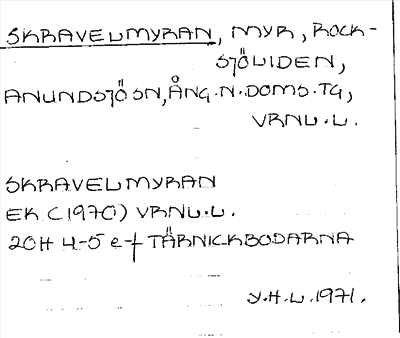 SKRAVELMYRAN, MYR, ROCK-
SJÖLIDEN,
ANUNDSJÖ SN, ÅNG.N.DOMS.TG,
VRNL.L.
SKRAVELMYRAN
EK (1970) VRNL.L.
20H 4-5 e-f TÄRNICKBODARNA
Y.H.L.1971.